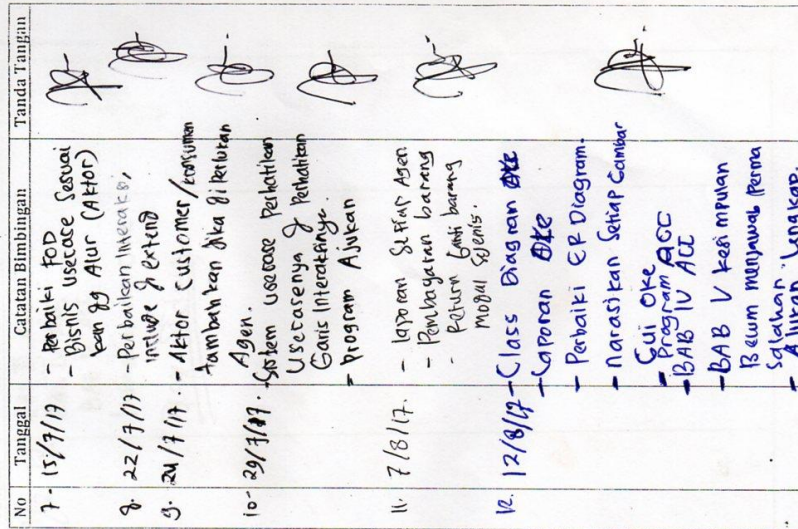 No Tanggal Catatan Bimbingan Tanda Tangan
7 - 15/7/17 - Perbaiki FOD
- Bisnis usecase Sesuai
kan dg Alur (Aktor)
8. 22/7/17 - Perbaikan Interaksi,
include & extend
9. 24/7/17 - Aktor Customer/konsumen
tambahkan jika diperlukan
Agen.
10 - 29/7/17. - Sistem usecase Perhatikan
Usecasenya & Perhatikan
Garis Interaksinya.
- program Ajukan
11. 7/8/17. - laporan Setiap Agen
- Pembayaran barang
- Return Ganti barang
Sejenis.
12. 12/8/17 - Class Diagram OKE
- Laporan OKE
- Perbaiki ER Diagram.
- Narasikan Setiap Gambar
Gui Oke
- Program ACC
- BAB IV ACC
- BAB V Kesimpulan
Belum menjawab Perma
Salahan.
- Ajukan Lengkap.